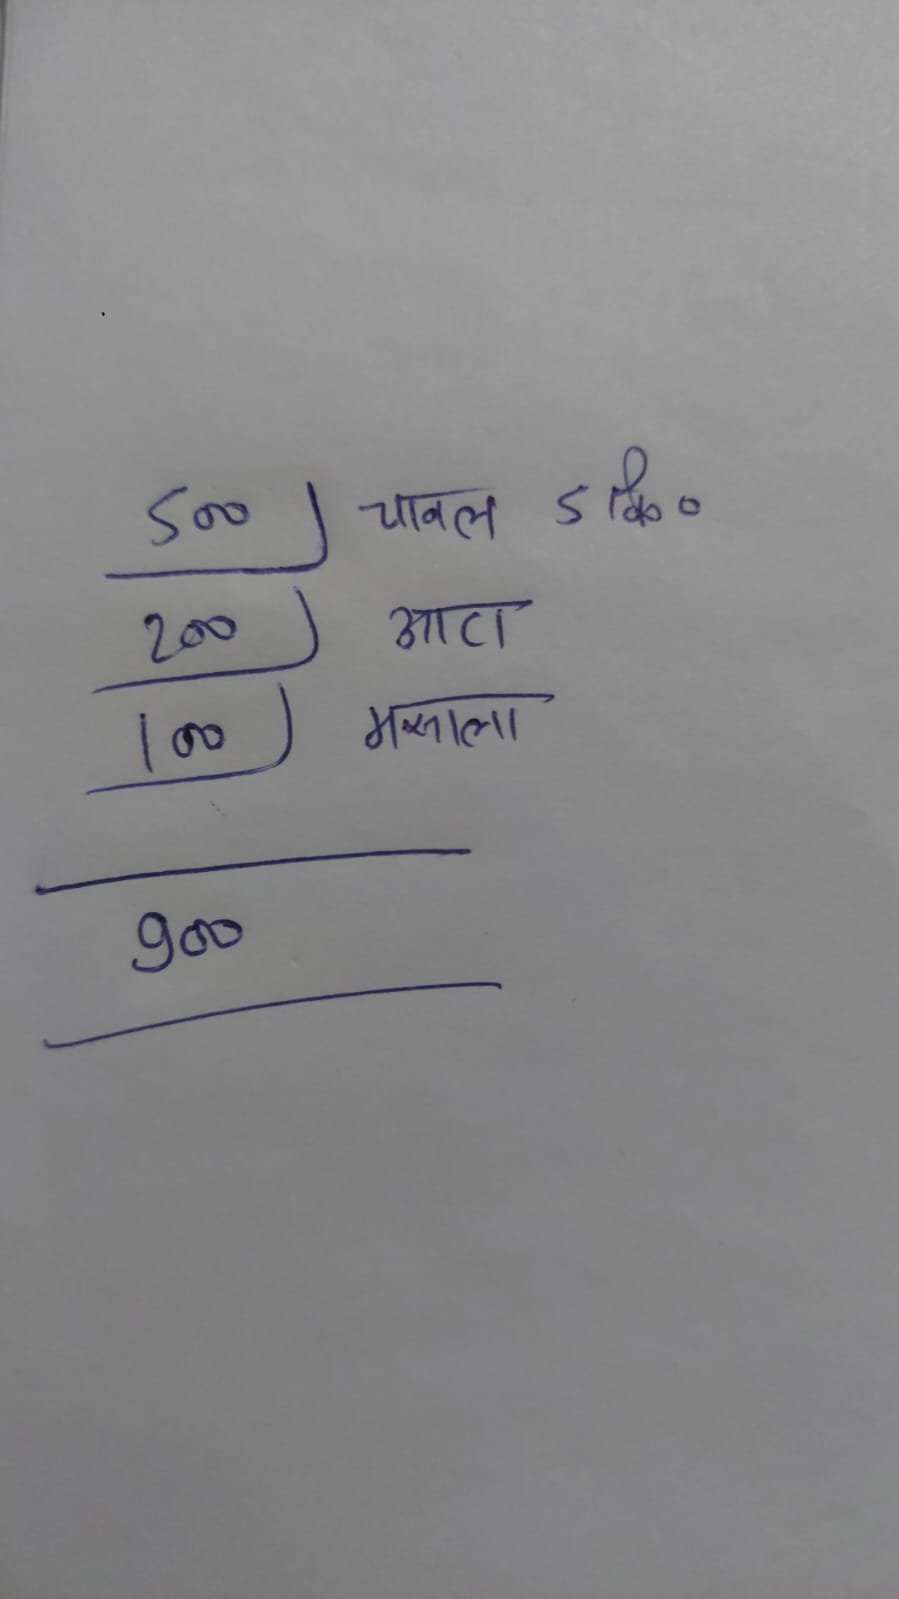 500) चावल 5 कि०
200) आटा
100) मसाला
900